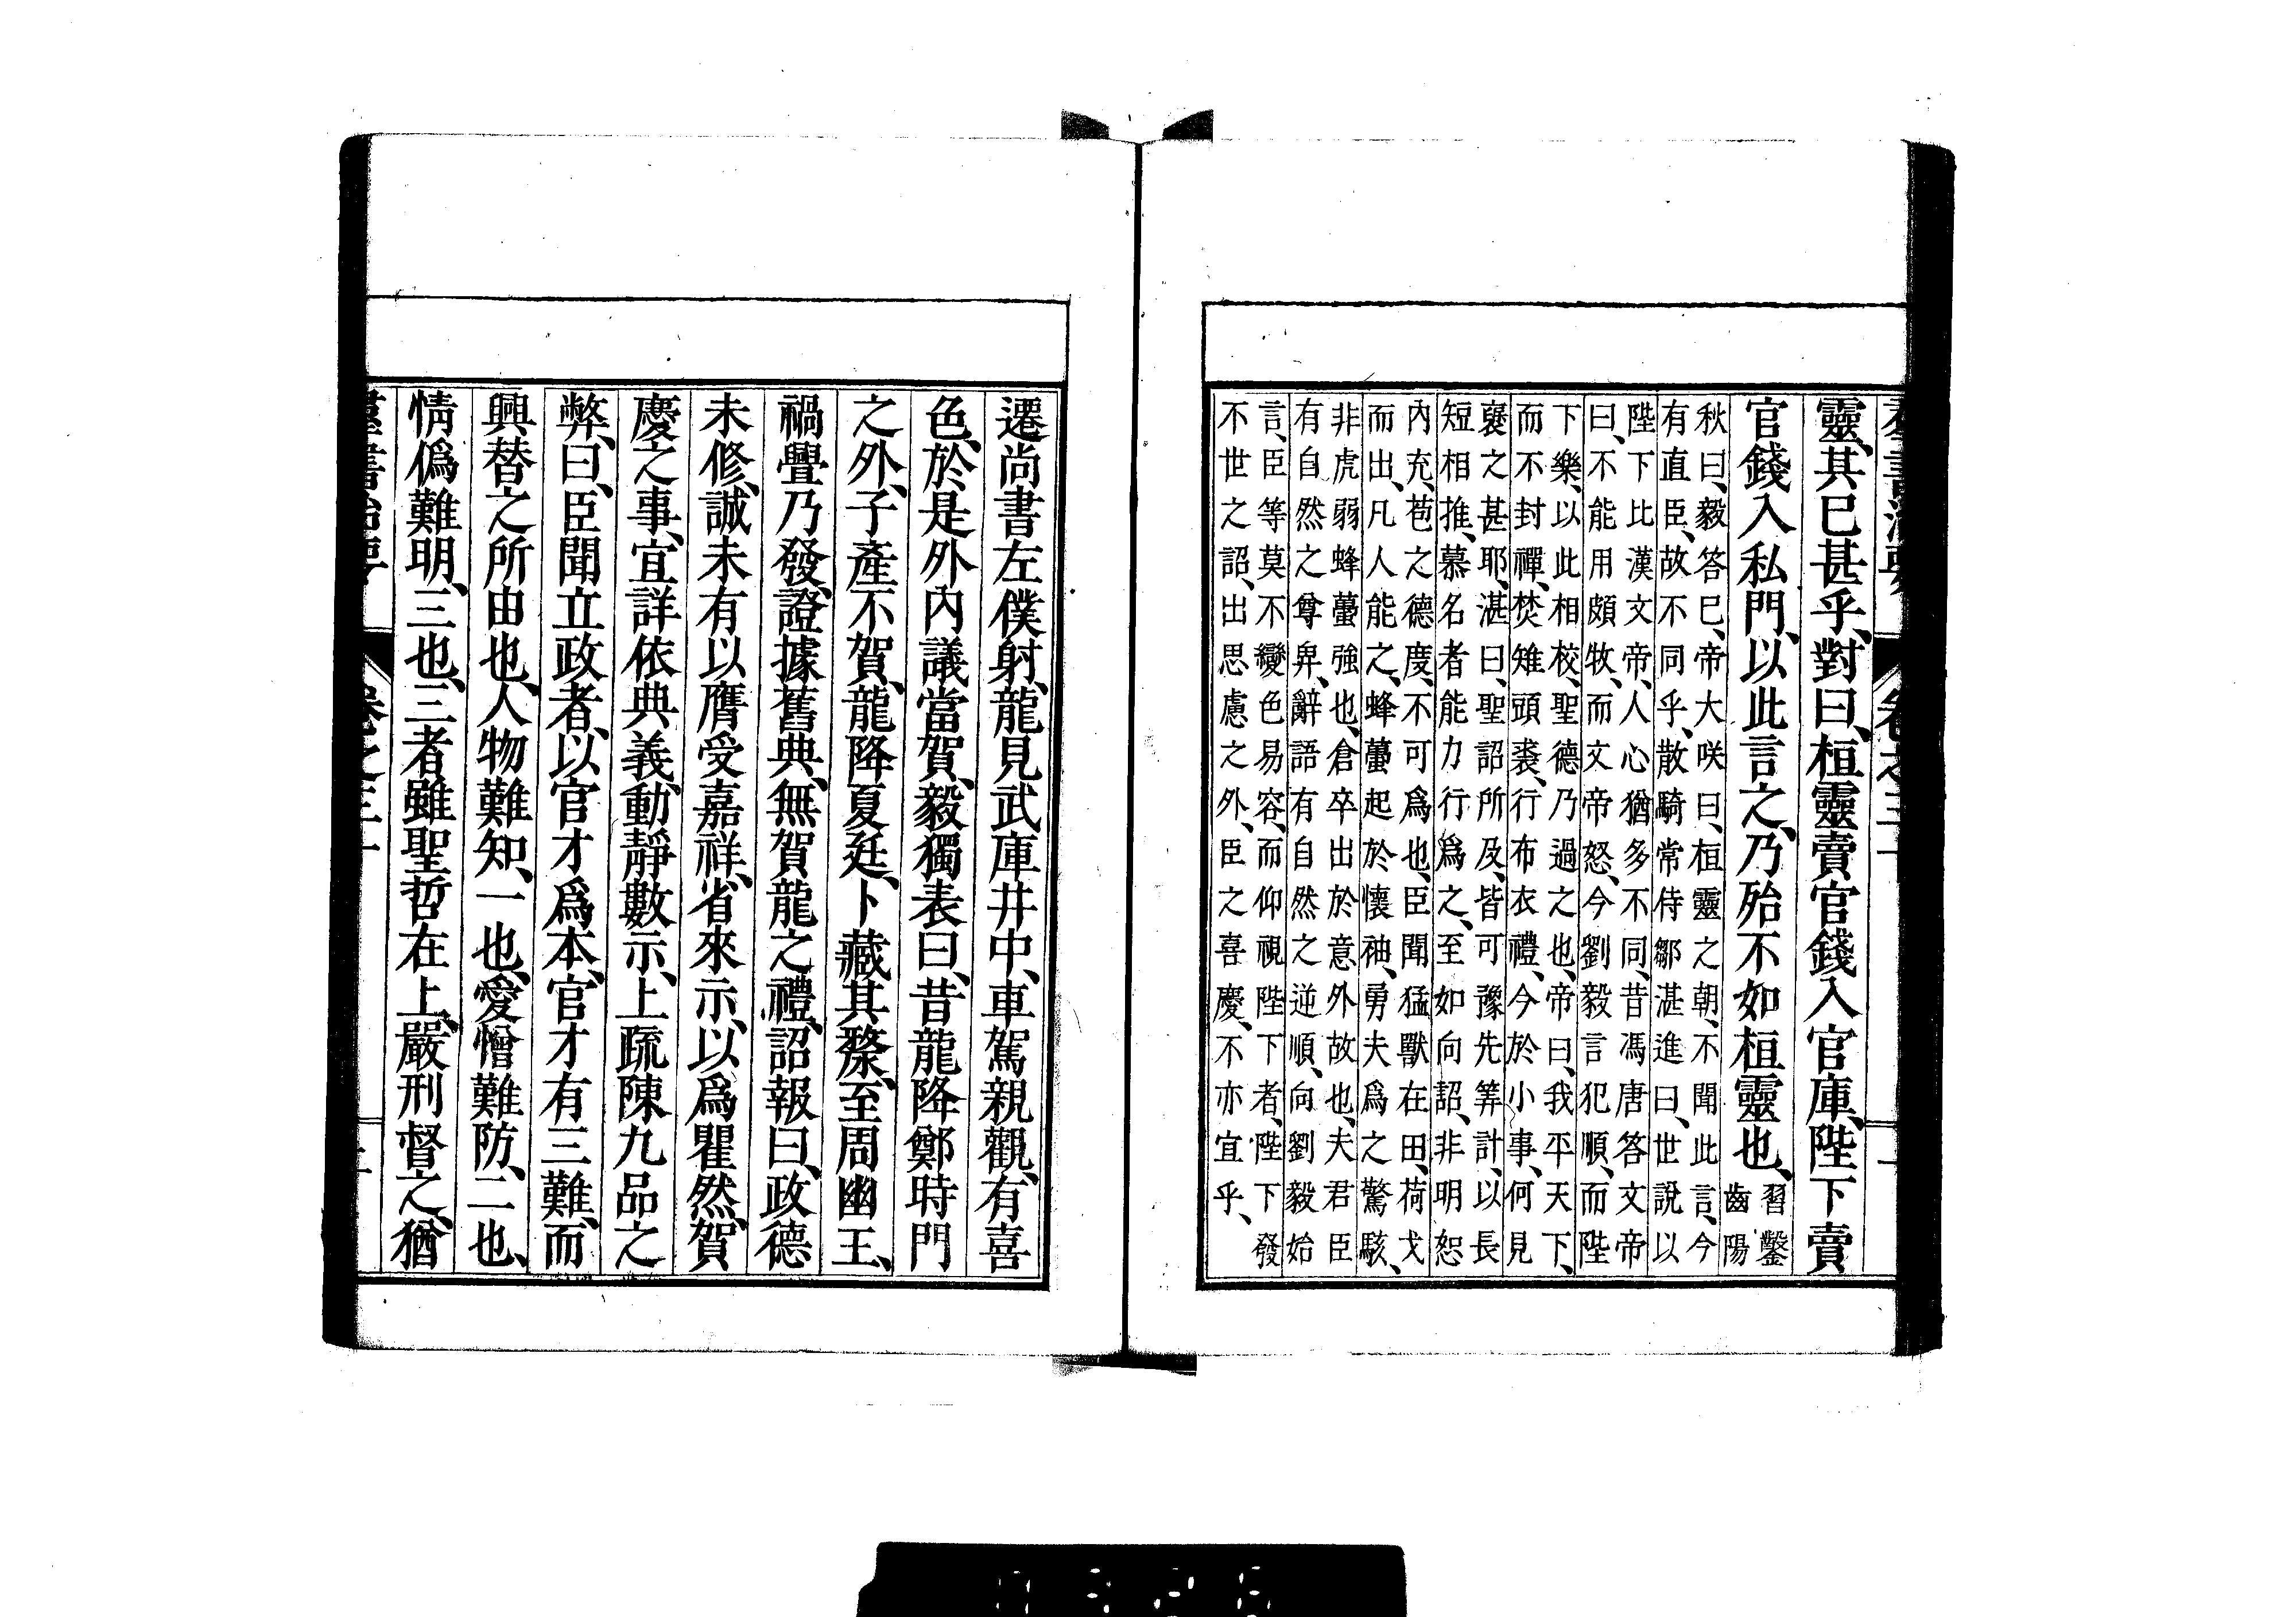 靈、其已甚乎、對曰、桓靈賣官錢入官庫、陛下賣
官錢入私門、以此言之、乃殆不如桓靈也、習鑿
齒陽
秋曰、毅答已、帝大咲曰、桓靈之朝、不聞此言、今
有直臣、故不同乎、散騎常侍鄒湛進曰、世說以
陛下比漢文帝、人心猶多不同、昔馮唐答文帝
曰、不能用頗牧、而文帝怒、今劉毅言犯順、而陛
下樂、以此相校、聖德乃過之也、帝曰、我平天下、
而不封禪、焚雉頭裘、行布衣禮、今於小事、何見
襃之甚耶、湛曰、聖詔所及、皆可豫先筭計、以長
短相推、慕名者能力行爲之、至如向詔、非明恕
內充、苞之德度、不可爲也、臣聞猛獸在田、荷戈
而出、凡人能之、蜂蠆起於懷袖、勇夫爲之驚駭、
非虎弱蜂蠆強也、倉卒出於意外故也、夫君臣
有自然之尊卑、辭語有自然之逆順、向劉毅始
言、臣等莫不變色易容、而仰視陛下者、陛下發
不世之詔、出思慮之外、臣之喜慶、不亦宜乎、
遷尚書左僕射、龍見武庫井中、車駕親觀、有喜
色、於是外內議當賀、毅獨表曰、昔龍降鄭時門
之外、子產不賀、龍降夏廷、卜藏其漦、至周幽王、
禍釁乃發、證據舊典、無賀龍之禮、詔報曰、政德
未修、誠未有以膺受嘉祥、省來示、以爲瞿然、賀
慶之事、宜詳依典義、動靜數示、上疏陳九品之
弊、曰、臣聞立政者、以官才爲本、官才有三難、而
興替之所由也、人物難知、一也、愛憎難防、二也、
情僞難明、三也、三者雖聖哲在上、嚴刑督之、猶